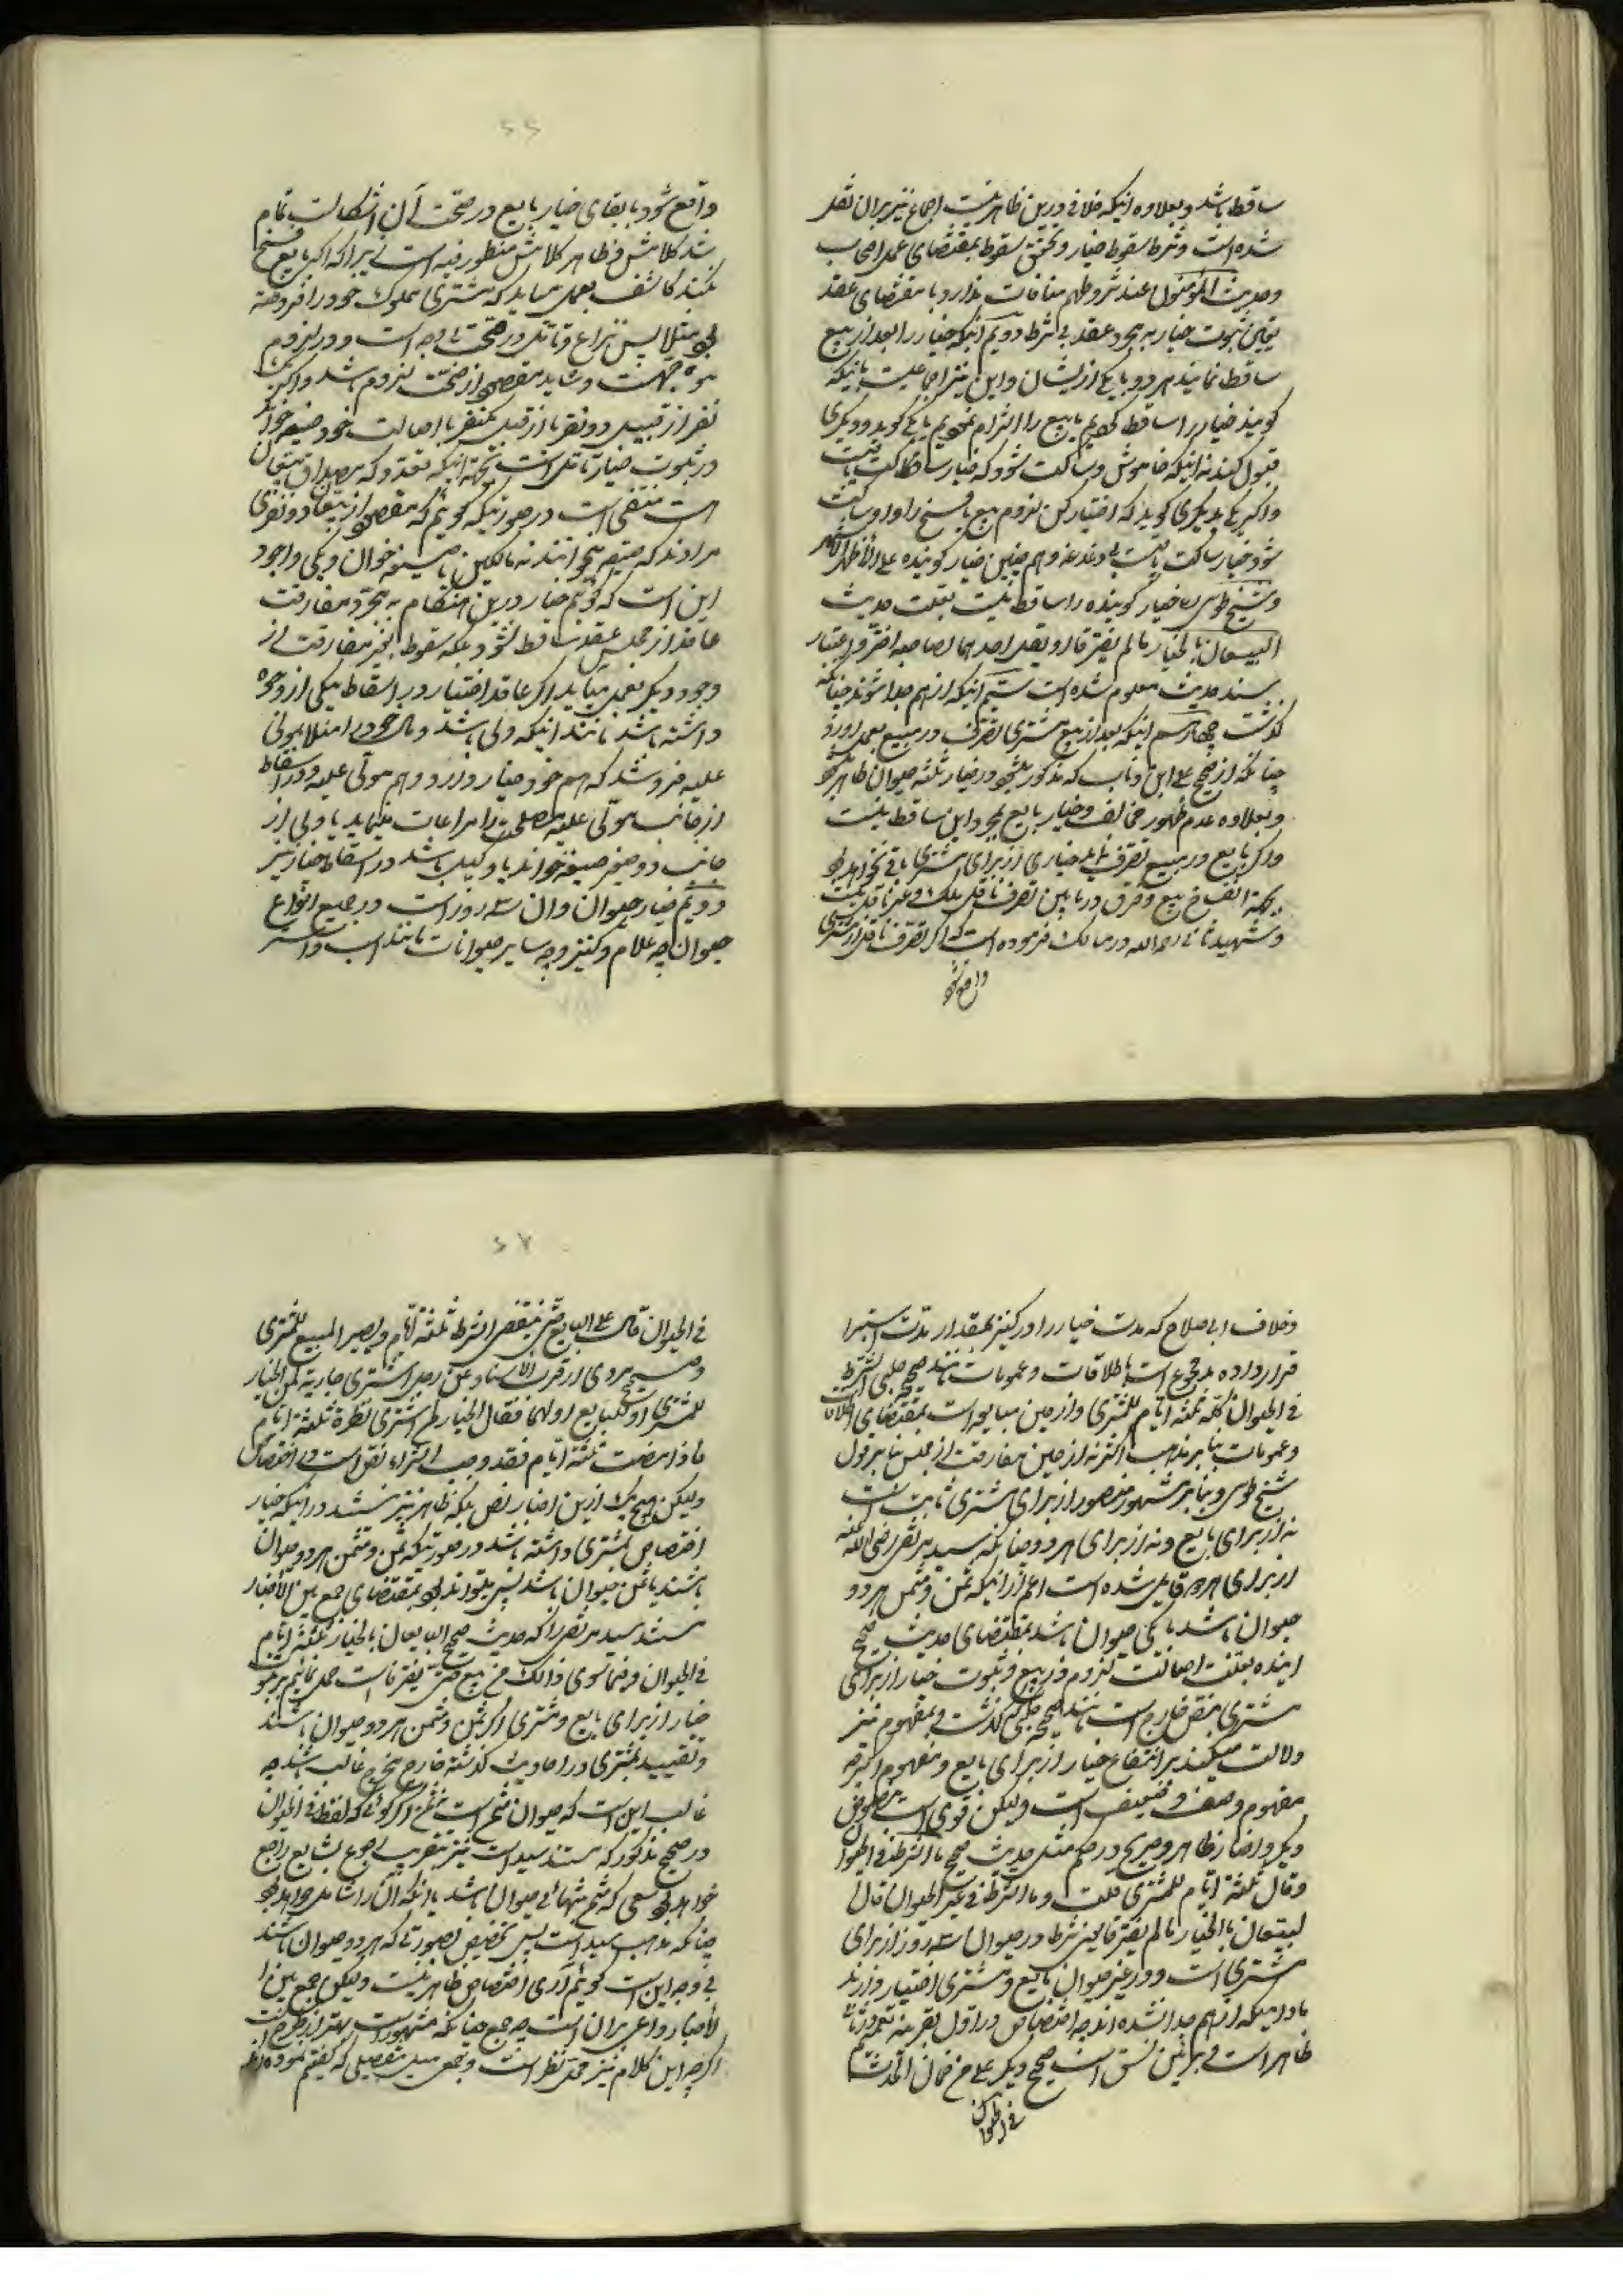 ساقط باشد و بعلاوه اینکه خلافی درین ظاهر نیست اجماع نیز بر آن نقل
شده است و شرط سقوط خیار و تحقق سقوط بمقتضای عمل اصحاب
و حدیث المؤمنون عند شروطهم منافات ندارد با مقتضای عقد
یعنی ثبوت خیار به مجرد عقد بی شرط دویم آنکه خیار را بعد از بیع
ساقط نمایند هر دو یا یکی از ایشان و این نیز اجماعیست باینکه
گویند خیار را ساقط کردیم یا بیع را التزام نمودیم یا یکی گوید و دیگری
قبول کند نه اینکه خاموش و ساکت شود که خیار ساکت باقیست
و اگر یکی بدیگری گوید که اختیار کن لزوم بیع یا فسخ را و او ساکت
شود خیار ساکت باقیست بی دغدغه و هم چنین خیار گوینده علی الاظهر الاشهر
و شیخ طوسی ره خیار گوینده را ساقط بعلت حدیث
البیعان بالخیار مالم یفترقا او یقل احدهما لصاحبه اختر و اعتبار
سند حدیث معلوم شده است سیم آنکه از هم جدا شوند چنانکه
گذشت چهارم اینکه بعد از بیع مشتری تصرف در مبیع بعمل آورد
چنانکه از صحیح علی ابن رئاب که مذکور میشود در خیار ثلثه حیوان ظاهر میشود
و بعلاوه عدم ظهور مخالف و خیار بایع بمجرد این ساقط نیست
و اگر بایع در مبیع تصرف نماید خیاری از برای مشتری باقی نخواهد بود
بجهة انفساخ بیع و فرق در مابین تصرف ناقل ملک و غیر ناقل نیست
و شهید ثانی رحمه الله در مسالک فرموده است که اگر تصرف ناقل از مشتری
واقع شود
۶۶
واقع شود با بقای خیار بایع در صحت آن اشکالست تمام
شد کلامش و ظاهر کلامش منظور فیه است زیرا که اگر بایع فسخ
نکند کاشف بعمل میاید که مشتری مملوک خود را فروخته
بود مثلا پس نزاع و تأمل در صحت بی وجه است و در لزوم
موجهت و شاید مقصود از صحت لزوم باشد و اگر یک
نفر از قبل دو نفر یا از قبل یکنفر با اصالت خود صیغه خواند
در ثبوت خیار تأمل است بجهة اینکه تعدد که مصداق بیعان
است منتفی است در صورتیکه گوئیم که مقصود از بیعان دو نفری
مرادند که صیغه میخوانند نه مالکین یا صیغه خوان و یکی و اجود
این است که گوئیم خیار درین هنگام به مجرد مفارقت
عاقد از مجلس عقد ساقط نشود بلکه سقوط بغیر مفارقت از
وجوه دیگر بعمل میاید اگر عاقد اختیار در اسقاط بیکی از وجوه
داشته باشد مانند اینکه ولی باشد و مال خود را مثلا بمولی
علیه فروشد که هم خود خیار دارد و هم مولی علیه و در اسقاط
از جانب مولی علیه مصلحت را مراعات مینماید یا ولی از
جانب دو صغیر صیغه خواند یا وکیل باشد در اسقاط خیار نیز
دویم خیار حیوان و آن سه روز است در جمیع انواع
حیوان چه غلام و کنیز و چه سایر حیوانات مانند اسب و استر
و خلاف ابی صلاح که مدت خیار را در کنیز بمقدار مدت استبرا
قرار داده مدفوع است باطلاقات و عمومات مانند صحیحه حلبی الشرط
فی الحیوان کله ثلثة ایام للمشتری و از حین مبایعه است بمقتضای اطلاقات
و عمومات بنا بر مذهب اکثر نه از حین مفارقت از مجلس بنا بر قول
شیخ طوسی و بنا بر مشهور منصور از برای مشتری ثابت است
نه از برای بایع و نه از برای هر دو چنانکه سید مرتضی رضی الله عنه
از برای هر دو قایل شده است اعم از اینکه ثمن و مثمن هر دو
حیوان باشد یا یکی حیوان باشد بمقتضای حدیث صحیح
آینده بعلت اصالت لزوم در بیع و ثبوت خیار از برای
مشتری بنص خارج است مانند صحیحه حلبی که گذشت و بمفهوم نیز
دلالت میکند بر انتفاع خیار از برای بایع و مفهوم اگر چه
مفهوم وصف و ضعیف است ولیکن قوی است بنصوص
دیگر و اخبار ظاهر و صریح در حکم مثل حدیث صحیح ما الشرط فی الحیوان
و قال ثلثة ایام للمشتری قلت و ما الشرط فی غیر الحیوان قال
البیعان بالخیار مالم یفترقا یعنی شرط در حیوان سه روز از برای
مشتری است و در غیر حیوان بایع و مشتری اختیار دارند
مادامیکه از هم جدا نشده اند چه اختصاص در اول بقرینه
ظاهر است و بر این نسق است صحیح دیگر
فی الحیوان
۶۷
فی الحیوان قال علی البایع حتی ینقضی الشرط ثلثة ایام و یصیر المبیع للمشتری
و صحیح مروی از قرب الاسناد عن رجل اشتری جاریة لمن الخیار
للمشتری او للبایع او لهما فقال الخیار لمن اشتری نظرة ثلثة ایام
فاذا مضت ثلثة ایام فقد وجب الشراء نص است در اختصاص
ولیکن هیچ یک ازین اخبار نص بلکه ظاهر نیز نیستند در اینکه خیار
اختصاص بمشتری داشته باشد در صورتیکه ثمن و مثمن هر دو حیوان
باشند یا ثمن حیوان باشد پس میتواند بود بمقتضای جمع بین الاخبار
مستند سید مرتضی را که حدیث صحیح البایعان بالخیار ثلثة ایام
فی الحیوان و فیما سوی ذالک من بیع حتی یفترقا است حمل نمائیم بر ثبوت
خیار از برای بایع و مشتری اگر ثمن و مثمن هر دو حیوان باشند
و تقیید بمشتری در احادیث گذشته خارج مخرج غالب باشد چه
غالب این است که حیوان مثمن است نه ثمن اگر گوئی که لفظ فی الحیوان
در صحیح مذکور که مستند سید است نیز بتقریب رجوع بشایع راجع
خواهد بود بمعنی که مثمن بتنهائی حیوان باشد یا اینکه آن را شامل خواهد بود
چنانکه مذهب سید است پس تخصیص بصورتی که هر دو حیوان باشند
بی وجه است گوئیم آری اختصاص ظاهر نیست ولیکن جمع بین
الاخبار داعی بر آن است چه جمع چنانکه مشهور است بهتر از طرح است
اگر چه این کلام نیز محل نظر است و جمعی میل بتفصیلی که گفتم نموده اند